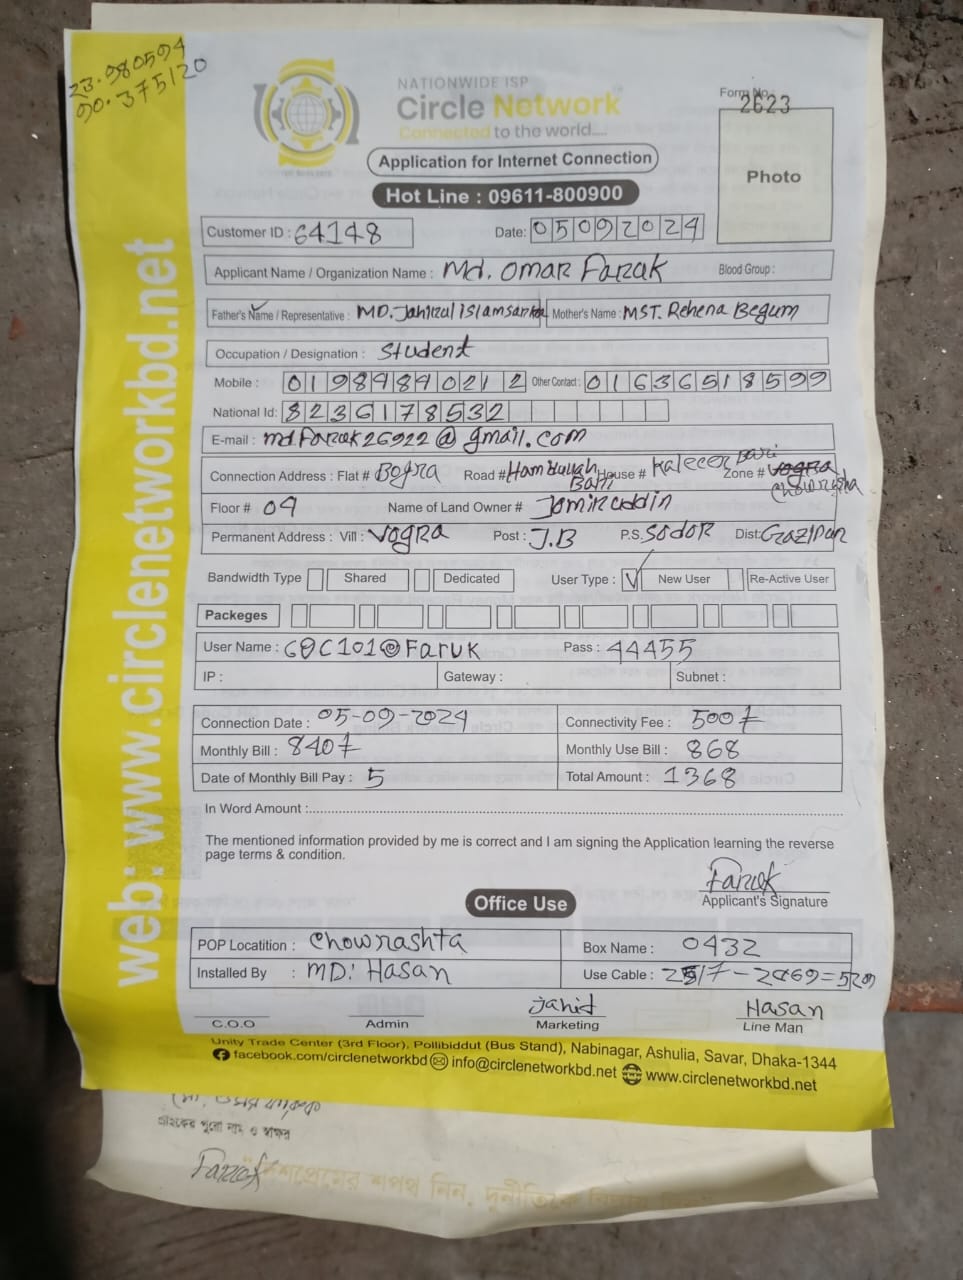 23.980594
90.375120
NATIONWIDE ISP
Circle Network
Connected to the world....
Form No.:
2623
Photo
Application for Internet Connection
Hot Line : 09611-800900
Customer ID : 64148
Date: 05092024
Applicant Name / Organization Name : Md. OMAR Faruk Blood Group :
Father's Name / Representative : MD. Jahirul islam sarkar Mother's Name : MST. Rehena Begum
Occupation / Designation : Student
Mobile : 01984840212 Other Contact : 01636518599
National Id: 8236178532
E-mail : md.Faruk26922@gmail.com
Connection Address : Flat # Bogra Road # House # Kalecer Bari Zone # Chowrasha
Floor # 04 Name of Land Owner # Jamiruddin
Permanent Address : Vill : VOGRA Post : J.B P.S. SODOR Dist: Gazipur
Bandwidth Type Shared Dedicated User Type : New User Re-Active User
Packeges
User Name : COC101@Faruk Pass : 44455
IP : Gateway : Subnet :
Connection Date : 05-09-2024 Connectivity Fee : 500
Monthly Bill : 840 Monthly Use Bill : 868
Date of Monthly Bill Pay : 5 Total Amount : 1368
In Word Amount :
The mentioned information provided by me is correct and I am signing the Application learning the reverse
page terms & condition.
Faruk
Applicant's Signature
Office Use
POP Locatition : Chowrashta Box Name : 0432
Installed By : MD: Hasan Use Cable :
Jahid Hasan
C.O.O Admin Marketing Line Man
Unity Trade Center (3rd Floor), Pollibiddut (Bus Stand), Nabinagar, Ashulia, Savar, Dhaka-1344
facebook.com/circlenetworkbd info@circlenetworkbd.net www.circlenetworkbd.net
web: www.circlenetworkbd.net
গ্রাহকের পুরো নাম ও স্বাক্ষর
Faruk
শপথ নিন, দূর্নীতিকে